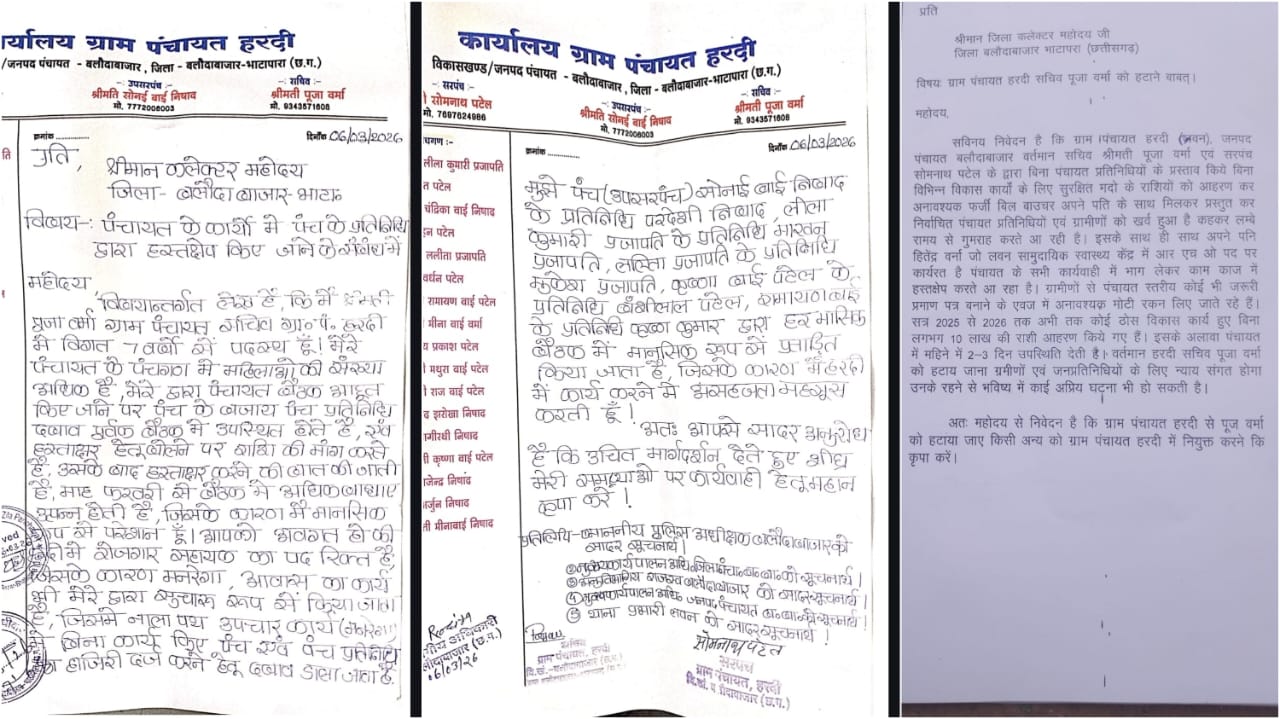 कार्यालय ग्राम पंचायत हरदी
/जनपद पंचायत - बलौदाबाजार, जिला - बलौदाबाजार-भाटापारा (छ.ग.)
-: उपसरपंच :-
श्रीमति सोनई बाई निषाद
मो. 7772006003
-: सचिव :-
श्रीमती पूजा वर्मा
मो. 9343571608
क्रमांक ...............
दिनाँक 06/03/2026
प्रति,
श्रीमान कलेक्टर महोदय
जिला- बलौदा बाजार-भाटा॰
विषय-: पंचायत के कार्यो में पंच के प्रतिनिधि
द्वारा हस्तक्षेप किए जाने के संबंध में
महोदय,
विषयान्तर्गत लेख है, कि मैं श्रीमती
पूजा वर्मा ग्राम पंचायत सचिव ग्रा॰पं॰ हरदी
में विगत 7 वर्षो से पदस्थ हूँ। मेरे
पंचायत के पंचगण में महिलाओ की संख्या
अधिक है, मेरे द्वारा पंचायत बैठक आहूत
किए जाने पर पंच के बजाय पंच प्रतिनिधि
दबाव पूर्वक बैठक में उपस्थित होते है, एवं
हस्ताक्षर हेतू बोलने पर राशि की मांग करते
है, उसके बाद हस्ताक्षर करने की बात की जाती
है, माह फरवरी से बैठक में अधिक बाधाए
उत्पन्न होती है, जिसके कारण मैं मानसिक
रूप से परेशान हूँ। आपको अवगत हो की
में रोजगार सहायक का पद रिक्त है,
जिसके कारण मनरेगा, आवास का कार्य
भी मेरे द्वारा सुचारू रूप से किया जाता
है, जिसमे नाला पथ उपचार कार्य (मनरेगा)
में बिना कार्य किए पंच एवं पंच प्रतिनिधि
का हाजिरी दर्ज करने हेतू दबाव डाला जाता है.
कार्यालय ग्राम पंचायत हरदी
विकासखण्ड/जनपद पंचायत - बलौदाबाजार, जिला - बलौदाबाजार-भाटापारा (छ.ग.)
-: सरपंच :-
सोमनाथ पटेल
मो. 7697624986
-: उपसरपंच :-
श्रीमति सोनई बाई निषाद
मो. 7772006003
-: सचिव :-
श्रीमती पूजा वर्मा
मो. 9343571608
क्रमांक ...............
दिनाँक 06/03/2026
पंचगण :-
लीला कुमारी प्रजापति
पटेल
चंद्रिका बाई निषाद
पटेल
ललीता प्रजापति
वर्धन पटेल
रामायण बाई
मीना बाई वर्मा
प्रकाश पटेल
मथुरा बाई पटेल
राज बाई पटेल
झरोखा निषाद
गीरथी निषाद
कृष्णा बाई पटेल
जेन्द्र निषाद
र्जुन निषाद
मीनाबाई निषाद
मुझे पंच (उपसरपंच) सोनाई बाई निषाद
के प्रतिनिधि परदेशी निषाद, लीला
कुमारी प्रजापति के प्रतिनिधि माखन
प्रजापति, ललिता प्रजापति के प्रतिनिधि
मुकेश प्रजापति, कृष्णा बाई पटेल के
प्रतिनिधि बंशीलाल पटेल, रामायण बाई
के प्रतिनिधि कृष्ण कुमार द्वारा हर मासिक
बैठक में मानसिक रूप से प्रताड़ित
किया जाता है, जिसके कारण मैं हरदी
में कार्य करने में असहजता महसूस
करती हूँ!
अतः आपसे सादर अनुरोध
है कि उचित मार्गदर्शन देते हुए शीघ्र
मेरी समस्याओ पर कार्यवाही हेतू महान
कृपा करें!
प्रतिलिपि- माननीय पुलिस अधीक्षक बलौदाबाजार को
सादर सूचनार्थ।
② मुख्य कार्यपालन अधि॰ जिला पंचा॰ब॰बा॰ को सूचनार्थ।
③ अनुविभागीय राजस्व बलौदाबाजार को सादर सूचनार्थ।
④ मुख्य कार्यपालन अधि॰ जनपद पंचायत ब॰बा॰ को सूचनार्थ।
⑤ थाना प्रभारी लवन को सादर सूचनार्थ!
सचिव
ग्राम पंचायत, हरदी
वि.खं.-बलौदाबाजार (छ.ग.)
सोमनाथ पटेल
सरपंच
ग्राम पंचायत, हरदी
वि.खं. बलौदाबाजार (छ.ग.)
प्रति
श्रीमान जिला कलेक्टर महोदय जी
जिला बलौदाबाजार भाटापारा (छत्तीसगढ़)
विषयः ग्राम पंचायत हरदी सचिव पूजा वर्मा को हटाने बाबत्।
महोदय,
सविनय निवेदन है कि ग्राम पंचायत हरदी (लवन), जनपद
पंचायत बलौदाबाजार वर्तमान सचिव श्रीमती पूजा वर्मा एवं सरपंच
सोमनाथ पटेल के द्वारा बिना पंचायत प्रतिनिधियों के प्रस्ताव किये बिना
विभिन्न विकास कार्यो के लिए सुरक्षित मदो के राशियों को आहरण कर
अनावश्यक फर्जी बिल बाउचर अपने पति के साथ मिलकर प्रस्तुत कर
निर्वाचित पंचायत प्रतिनिधियों एवं ग्रामीणों को खर्च हुआ है कहकर लम्बे
समय से गुमराह करते आ रही है। इसके साथ ही साथ अपने पति
हितेंद्र वर्मा जो लवन सामुदायिक स्वास्थ्य केंद्र में आर एच ओ पद पर
कार्यरत है पंचायत के सभी कार्यवाही में भाग लेकर काम काज में
हस्तक्षेप करते आ रहा है। ग्रामीणों से पंचायत स्तरीय कोई भी जरूरी
प्रमाण पत्र बनाने के एवज में अनावश्यक मोटी रकन लिए जाते रहे हैं।
सत्र 2025 से 2026 तक अभी तक कोई ठोस विकास कार्य हुए बिना
लगभग 10 लाख की राशी आहरण किये गए हैं। इसके अलावा पंचायत
में महिने में 2-3 दिन उपस्थिति देती है। वर्तमान हरदी सचिव पूजा वर्मा
को हटाय जाना ग्रमीणों एवं जनप्रतिनिधियों के लिए न्याय संगत होगा
उनके रहने से भविष्य में काई अप्रिय घट्ना भी हो सकती है।
अतः महोदय से निवेदन है कि ग्राम पंचायत हरदी से पूज वर्मा
को हटाया जाए किसी अन्य को ग्राम पंचायत हरदी में नियुक्त करने कि
कृपा करें।